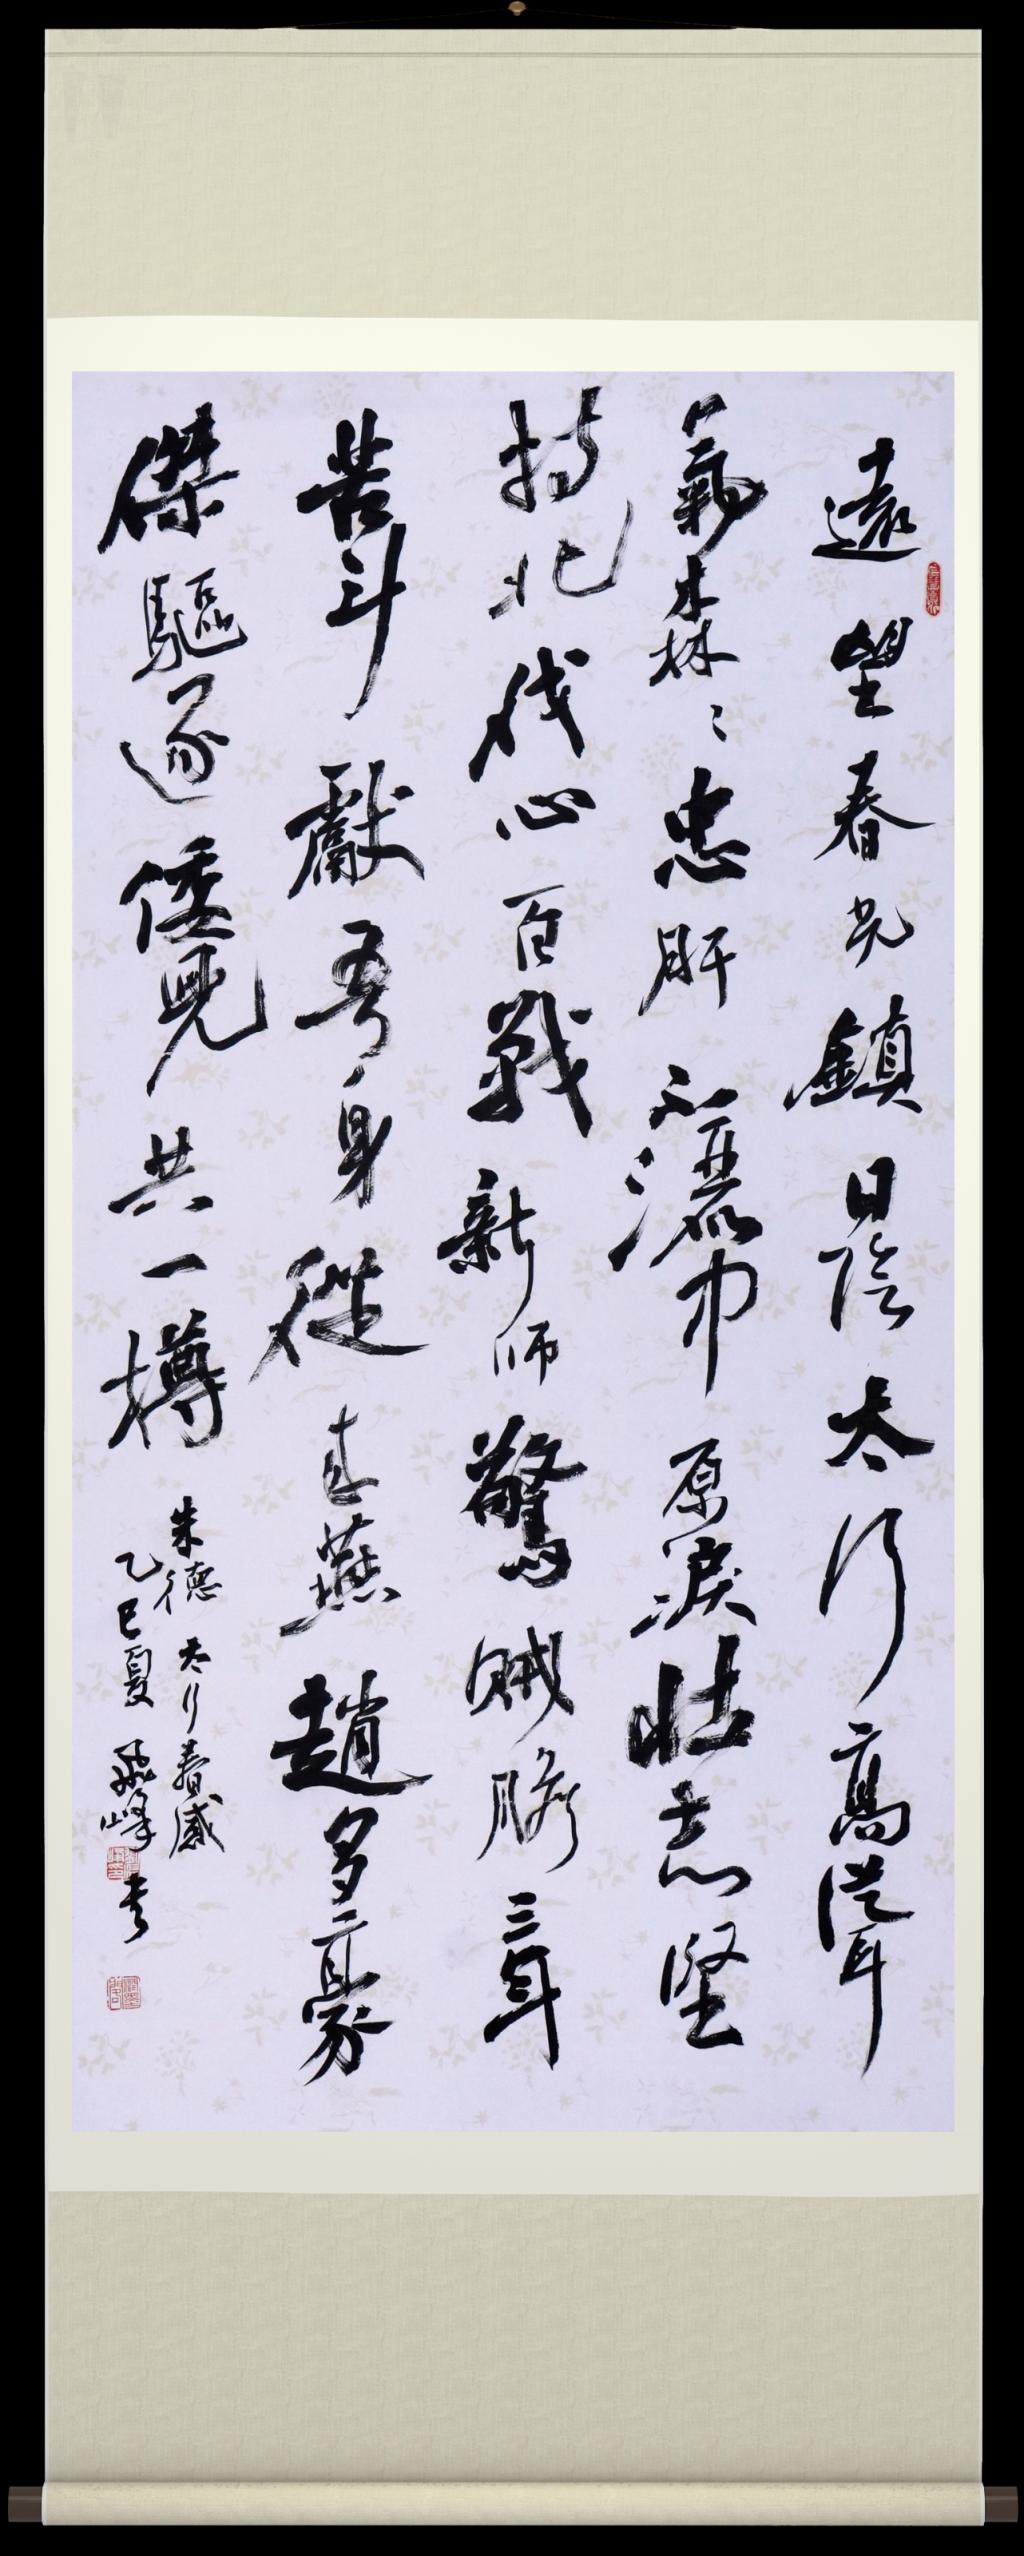 遠望春光鎮日陰太行高聳
氣森〻忠肝不灑中原淚壯志坚
持北伐心百戰新師驚賊膽三年
苦斗獻吾身從来燕趙多豪
傑驅逐倭兒共一樽
朱德 太行春感
乙巳夏 飛峰书